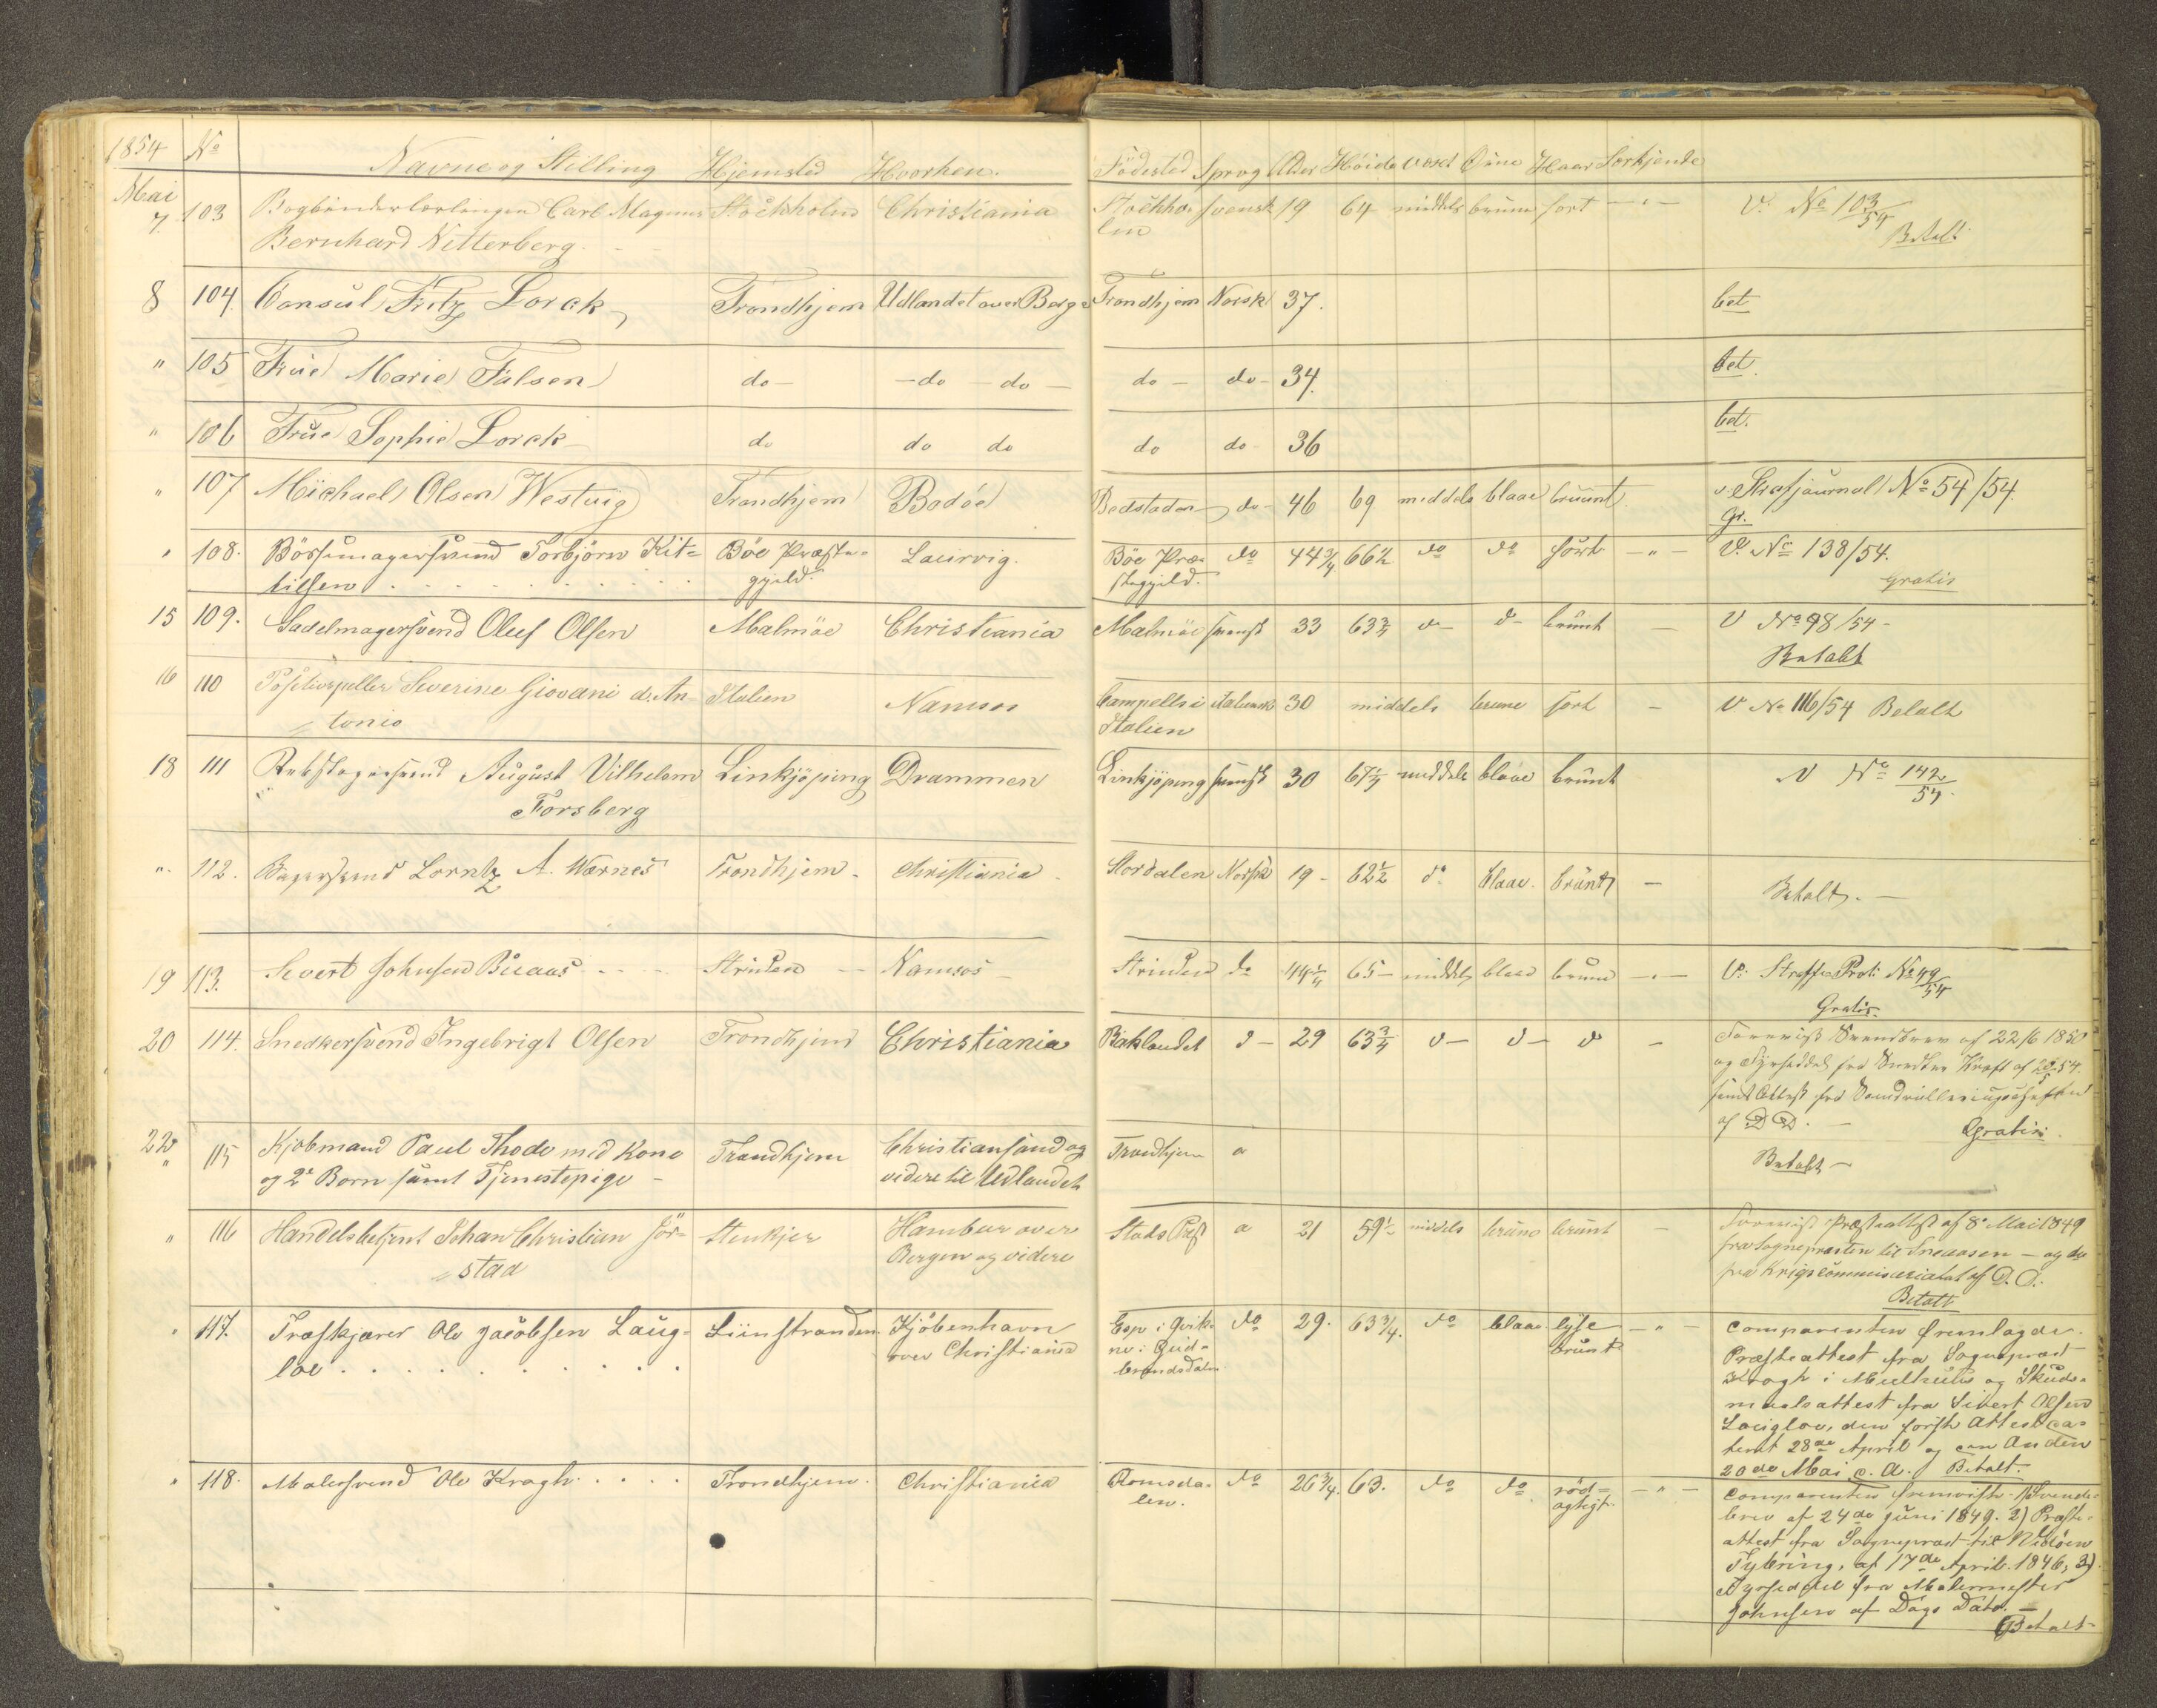 1854 No Navne og Stilling Hjemsted Hvorhen. Födested Sprog Alder Höide Vext Öine Haar Særkjende
Mai
7. 103 Bogbinderlærlingen Carl Magnus Stockholm Christiania Stockho- svensk 19 64 middels brune sort — " — V. No 103/54
Bernhard Vitterberg. lm Betalt
8 104 Consul Fritz Lorck Trondhjem Udlandet over Berge Trondhjem Norsk 37. bet
" 105 Frue Marie Falsen do — — do — do — do — do — 34. bet.
" 106 Frue Sophie Lorck do do do do do 36 bet.
" 107 Michael Olsen Westvig Trondhjem Bodöe Bedstaden do — 46 69 middels blaae bruunt v. Strafjournal No 54/54.
Gr.
" 108. Bössemagersvend Torbjörn Kit= Böe Præste= Laurvig. Böe Præ- do 44 3/4 66 1/2 do do sort — " — V. No 138/54.
tilsen . . . . . . . . . gjeld. stegjeld. gratis
15 109. Sadelmagersvend Oluf Olsen Malmöe Christiania Malmöe svensk 33 63 3/4 d— d— brunt — V No 98/54 —
Betalt
16 110 Positivspiller Severine Giovani d. An- Italien Namsos Campells i italiensk 30 middels brune sort — V No 116/54 Betalt
tonio Italien
18 111 Rebslagersvend August Vilhelm Linkjöping Drammen Linkjöping svensk 30 67 1/4 middels blaae brunt V No 142/54.
Forsberg
" 112. Bagersvend Lorntz A. Wærnes Trondhjem. Christiania Stordalen Norsk 19 — 62 1/2 do blaae. brunt — Betalt. —
19 113. Sivert Johnsen Buaas Strinden Namsos Strinden do 44 1/4 65 — middels blaae brune — " — V. Straffe Prot. No 49/54
Gratis.
20 114. Snedkersvend Ingebrigt Olsen Trondhjem Christiania Baklandet d— 29 63 3/4 d— d— d — Foreviist Svendebrev af 22/6 1850
og Fyrseddel fra Snedker Kraft af 54.
samt Attest fra
af D D. — Gratis.
22 115 Kjöbmand Paul Thode med Kone Trondhjem Christiansand og Trondhjem a Betalt —
og 2 Börn samt Tjenestepige — videre til Udlandet
" 116 Handelsbetjent Johan Christian Jör= Stenkjer Hambur over Stods Prst a 21 59 1/2 middels brune brunt — Foreviist Præsteattest af 8 Mai 1849
stad Bergen og videre fra Sognepræsten til Sneaasen — og do
fra Krigscommisariatet af D. D.
Betalt
" 117. Træskjærer Ole Jacobsen Laug= Liinstranden. Kjöbenhavn Esp i Qvik- do 29. 63 3/4. do blaae lyse — " — Comparenten fremlagde
loe . . . . . . . . . over Christiania ne i Gud- brunt Præsteattest fra Sognepræst
brandsdalen Krogh i Melhuus og Skuds=
maalsattest fra Sivert Olsen
Laugloe, den förste Attest da=
teret 28de April og den Anden
20de Mai c. a. Betalt.
" 118. Malersvend Ole Kragh . . . . Trondhjem. Christiania Romsda- do 26 3/4. 63. do do röd= — " — Comparenten fremviste 1) Svende-
len. agtigt brev af 24de Juni 1849. 2) Præste-
attest fra Sognepræst til
Tybring, af 17de April 1846, 3)
Fyrseddel fra Malermester
Johnsen af Dags Dato. —
Betalt